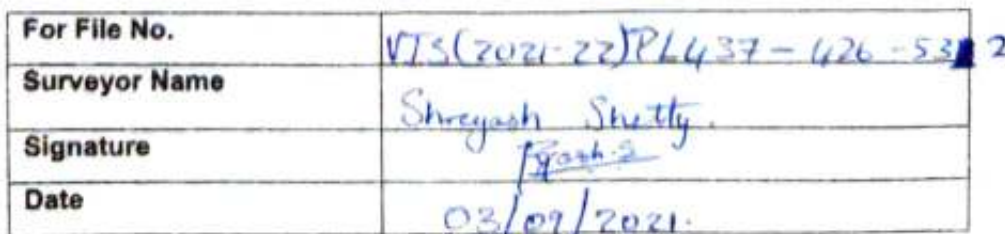 For File No. VIS(2021-22)PL437-426-532
Surveyor Name Shreyash Shetty.
Signature
Date 03/09/2021.